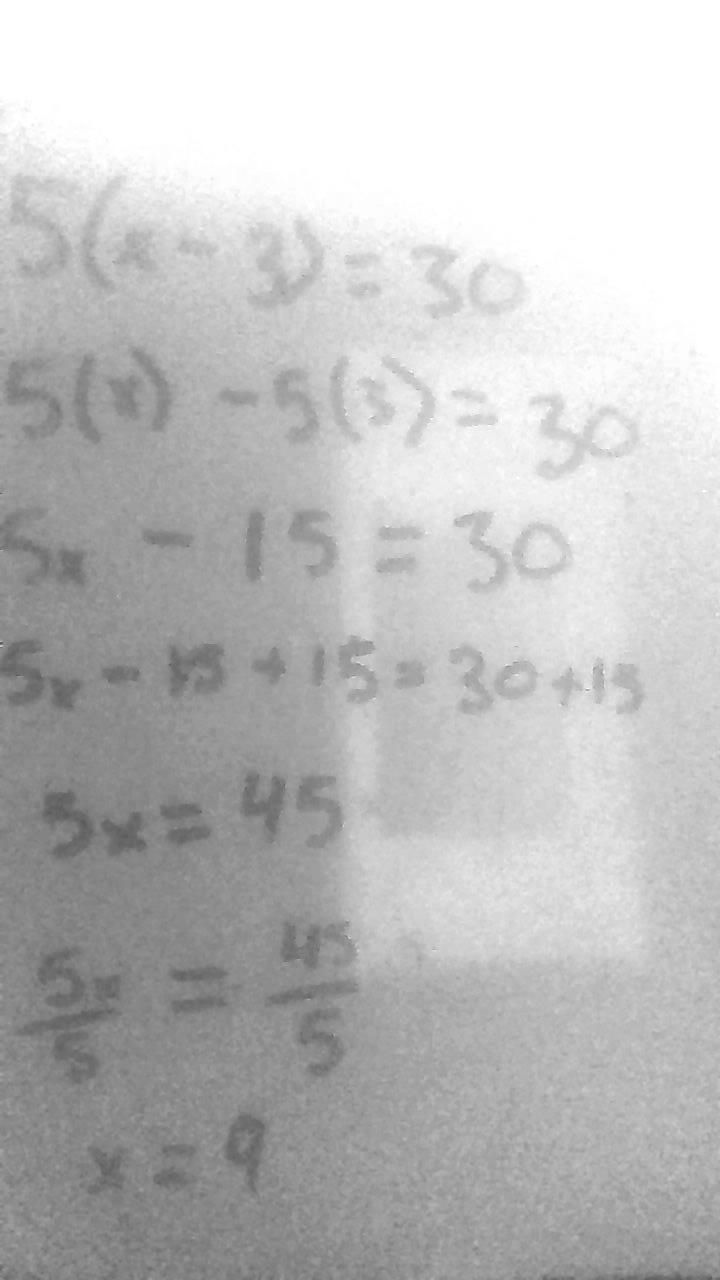 5(x - 3) = 30
5(x) - 5(3) = 30
5x - 15 = 30
5x - 15 + 15 = 30 + 15
5x = 45
5x/5 = 45/5
x = 9